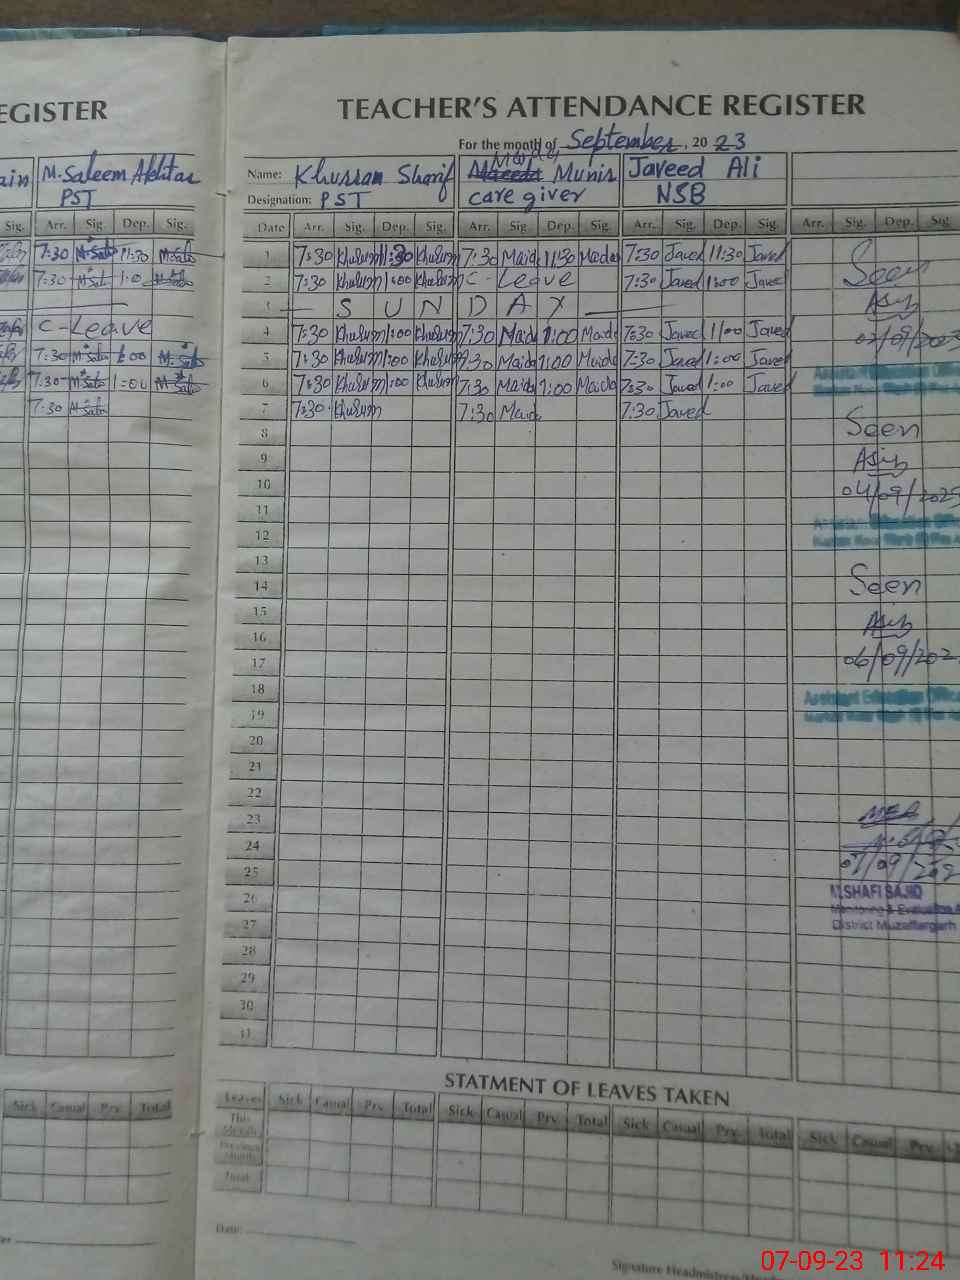 EGISTER
ain M. Saleem Akhtar
PST
Sig. Arr. Sig. Dep. Sig.
7:30 11:30
7:30 1:00
C-Leave
7:30 1:00
7:30 1:00
7:30
Sick Casual Prv. Total
TEACHER'S ATTENDANCE REGISTER
For the month of September, 2023
Name: Khussam Sharif Munir Javeed Ali
Designation: PST care giver NSB
Date Arr. Sig. Dep. Sig. Arr. Sig. Dep. Sig. Arr. Sig. Dep. Sig. Arr. Sig. Dep. Sig.
1 7:30 11:30 7:30 Maida 11:30 Maida 7:30 Javed 11:30 Javed
2 7:30 1:00 C-Leave 7:30 Javed 1:00 Javed
3 SUNDAY
4 7:30 1:00 7:30 Maida 1:00 Maida 7:30 Javed 1:00 Javed
5 7:30 1:00 7:30 Maida 1:00 Maida 7:30 Javed 1:00 Javed
6 7:30 1:00 7:30 Maida 1:00 Maida 7:30 Javed 1:00 Javed
7 7:30 7:30 Maida 7:30 Javed
8
9
10
11
12
13
14
15
16
17
18
19
20
21
22
23
24
25
26
27
28
29
30
31
Seen
02/09/2023
Assistant Education Office
Seen
04/09/2023
Assistant Education Office
Seen
06/09/202
Assistant Education Office
MEA
07/09/202
M.SHAFI SAJID
Monitoring & Evaluation A
District Muzaffargarh
STATMENT OF LEAVES TAKEN
Leaves Sick Casual Prv. Total Sick Casual Prv. Total Sick Casual Prv. Total Sick Casual Prv.
This Month
Previous Month
Total
Date:
Signature Headmistress/Head
07-09-23 11:24